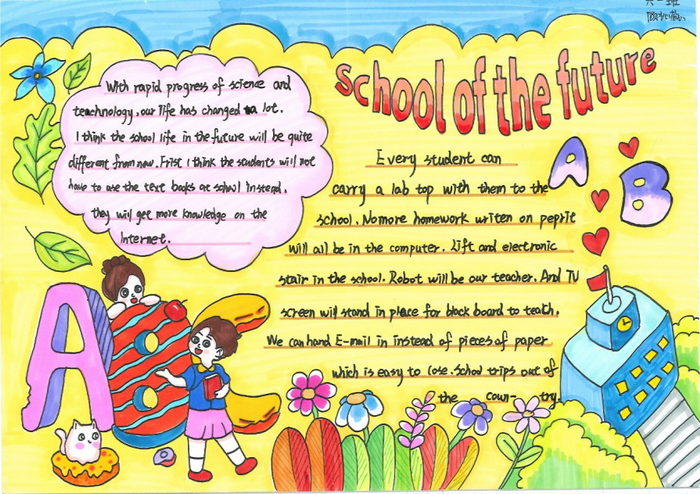 六一班
School of the future
With rapid progress of science and
teachnology, our life has changed a lot.
I think the school life in the future will be quite
different from now. Frist I think the students will not
have to use the text books at school instead,
they will get more knowledge on the
internet.
Every student can
carry a lab top with them to the
school. No more homework writen on peprit
will all be in the computer. Lift and electronic
stair in the school. Robot will be our teacher. And TV
screen will stand in place for black board to teath.
We can hand E-mail in instead of pieces of paper
which is easy to lose. School trips out of
the coun- try.
A B
ABC